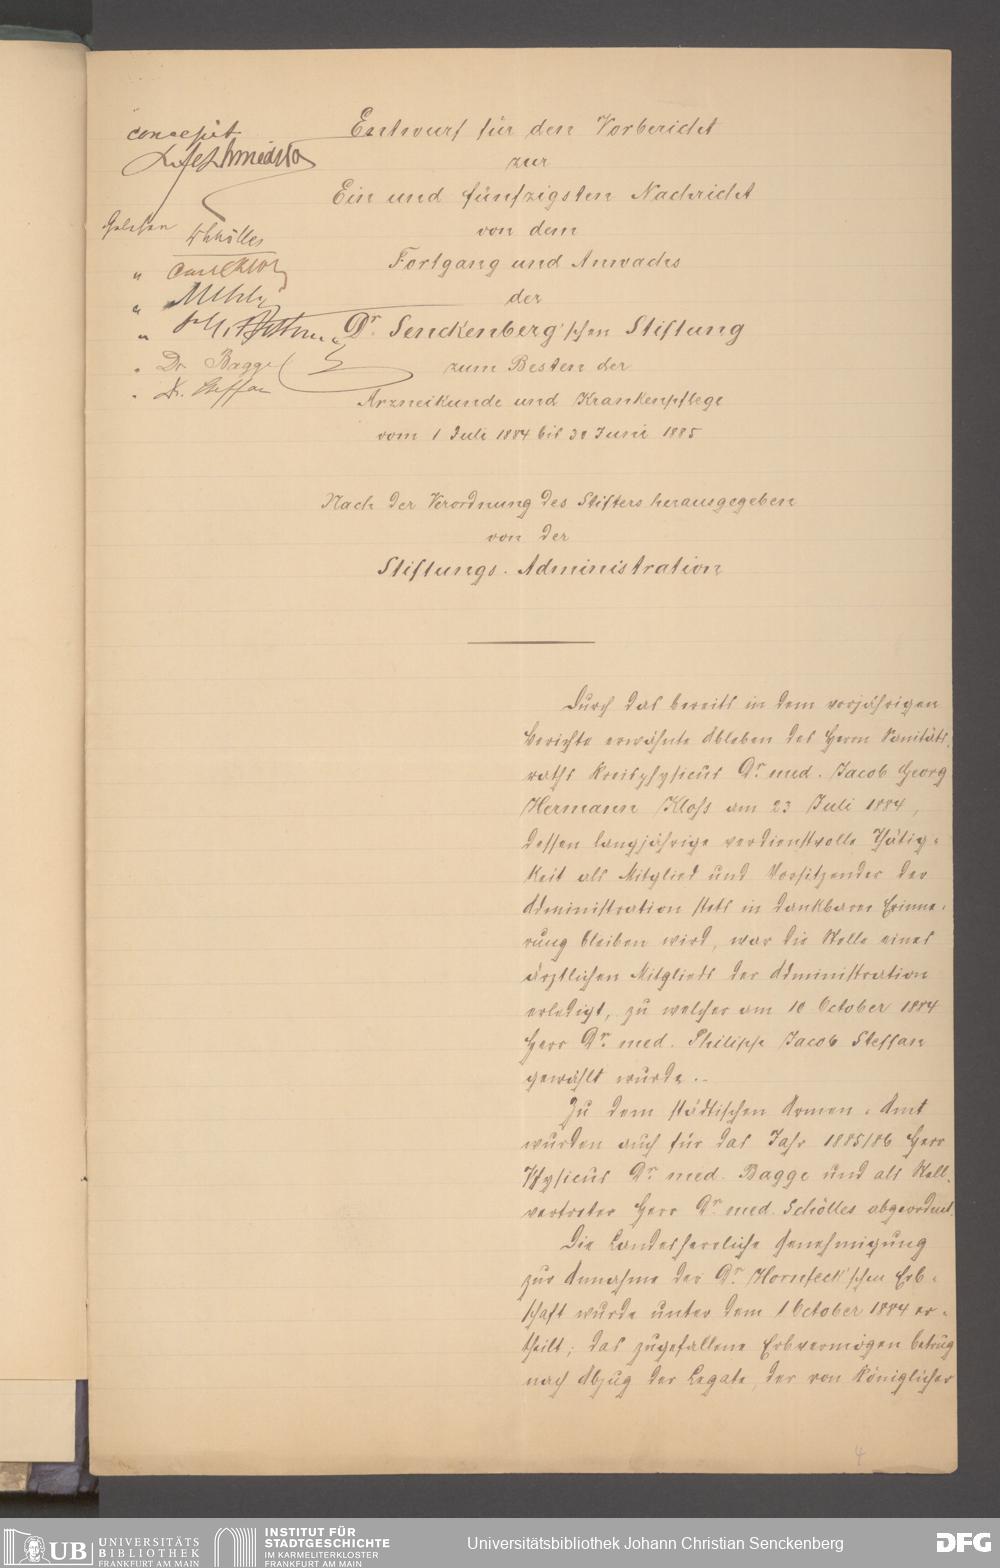 concepit
Entwurf für den Vorbericht
zur
Ein und fünfzigsten Nachricht
von dem
Fortgang und Anwachs
der
Dr. Senckenberg'schen Stiftung
zum Besten der
Arzneikunde und Krankenpflege
vom 1 Juli 1884 bis 30 Juni 1885
Gelesen
Schölles
"
"
"
" Dr Bagge
" Dr. Steffan
Nach der Verordnung des Stifters herausgegeben
von der
Stiftungs-Administration
Durch das bereits in dem vorjährigen
Berichte erwähnte Ableben des Herrn Sanitäts-
raths Kreisphysicus Dr. med. Jacob Georg
Hermann Kloß am 23 Juli 1884,
dessen langjährige verdienstvolle Thätig-
keit als Mitglied und Vorsitzender der
Administration stets in dankbarer Erinne-
rung bleiben wird, war die Stelle eines
ärztlichen Mitglieds der Administration
erledigt, zu welcher am 10 October 1884
Herr Dr. med. Philipp Jacob Steffan
gewählt wurde.
Zu dem städtischen Armen-Amt
wurden auch für das Jahr 1885/86 Herr
Physicus Dr. med. Bagge und als Stell-
vertreter Herr Dr. med. Schölles abgeordnet.
Die Landesherrliche Genehmigung
zur Annahme der Dr. Hornfeck'schen Erb-
schaft wurde unter dem 1 October 1884 er-
theilt; das zugefallene Erbvermögen betrug
nach Abzug der Legate, der von Königlicher
4
UB UNIVERSITÄTS
BIBLIOTHEK
FRANKFURT AM MAIN
INSTITUT FÜR
STADTGESCHICHTE
IM KARMELITERKLOSTER
FRANKFURT AM MAIN
Universitätsbibliothek Johann Christian Senckenberg
DFG